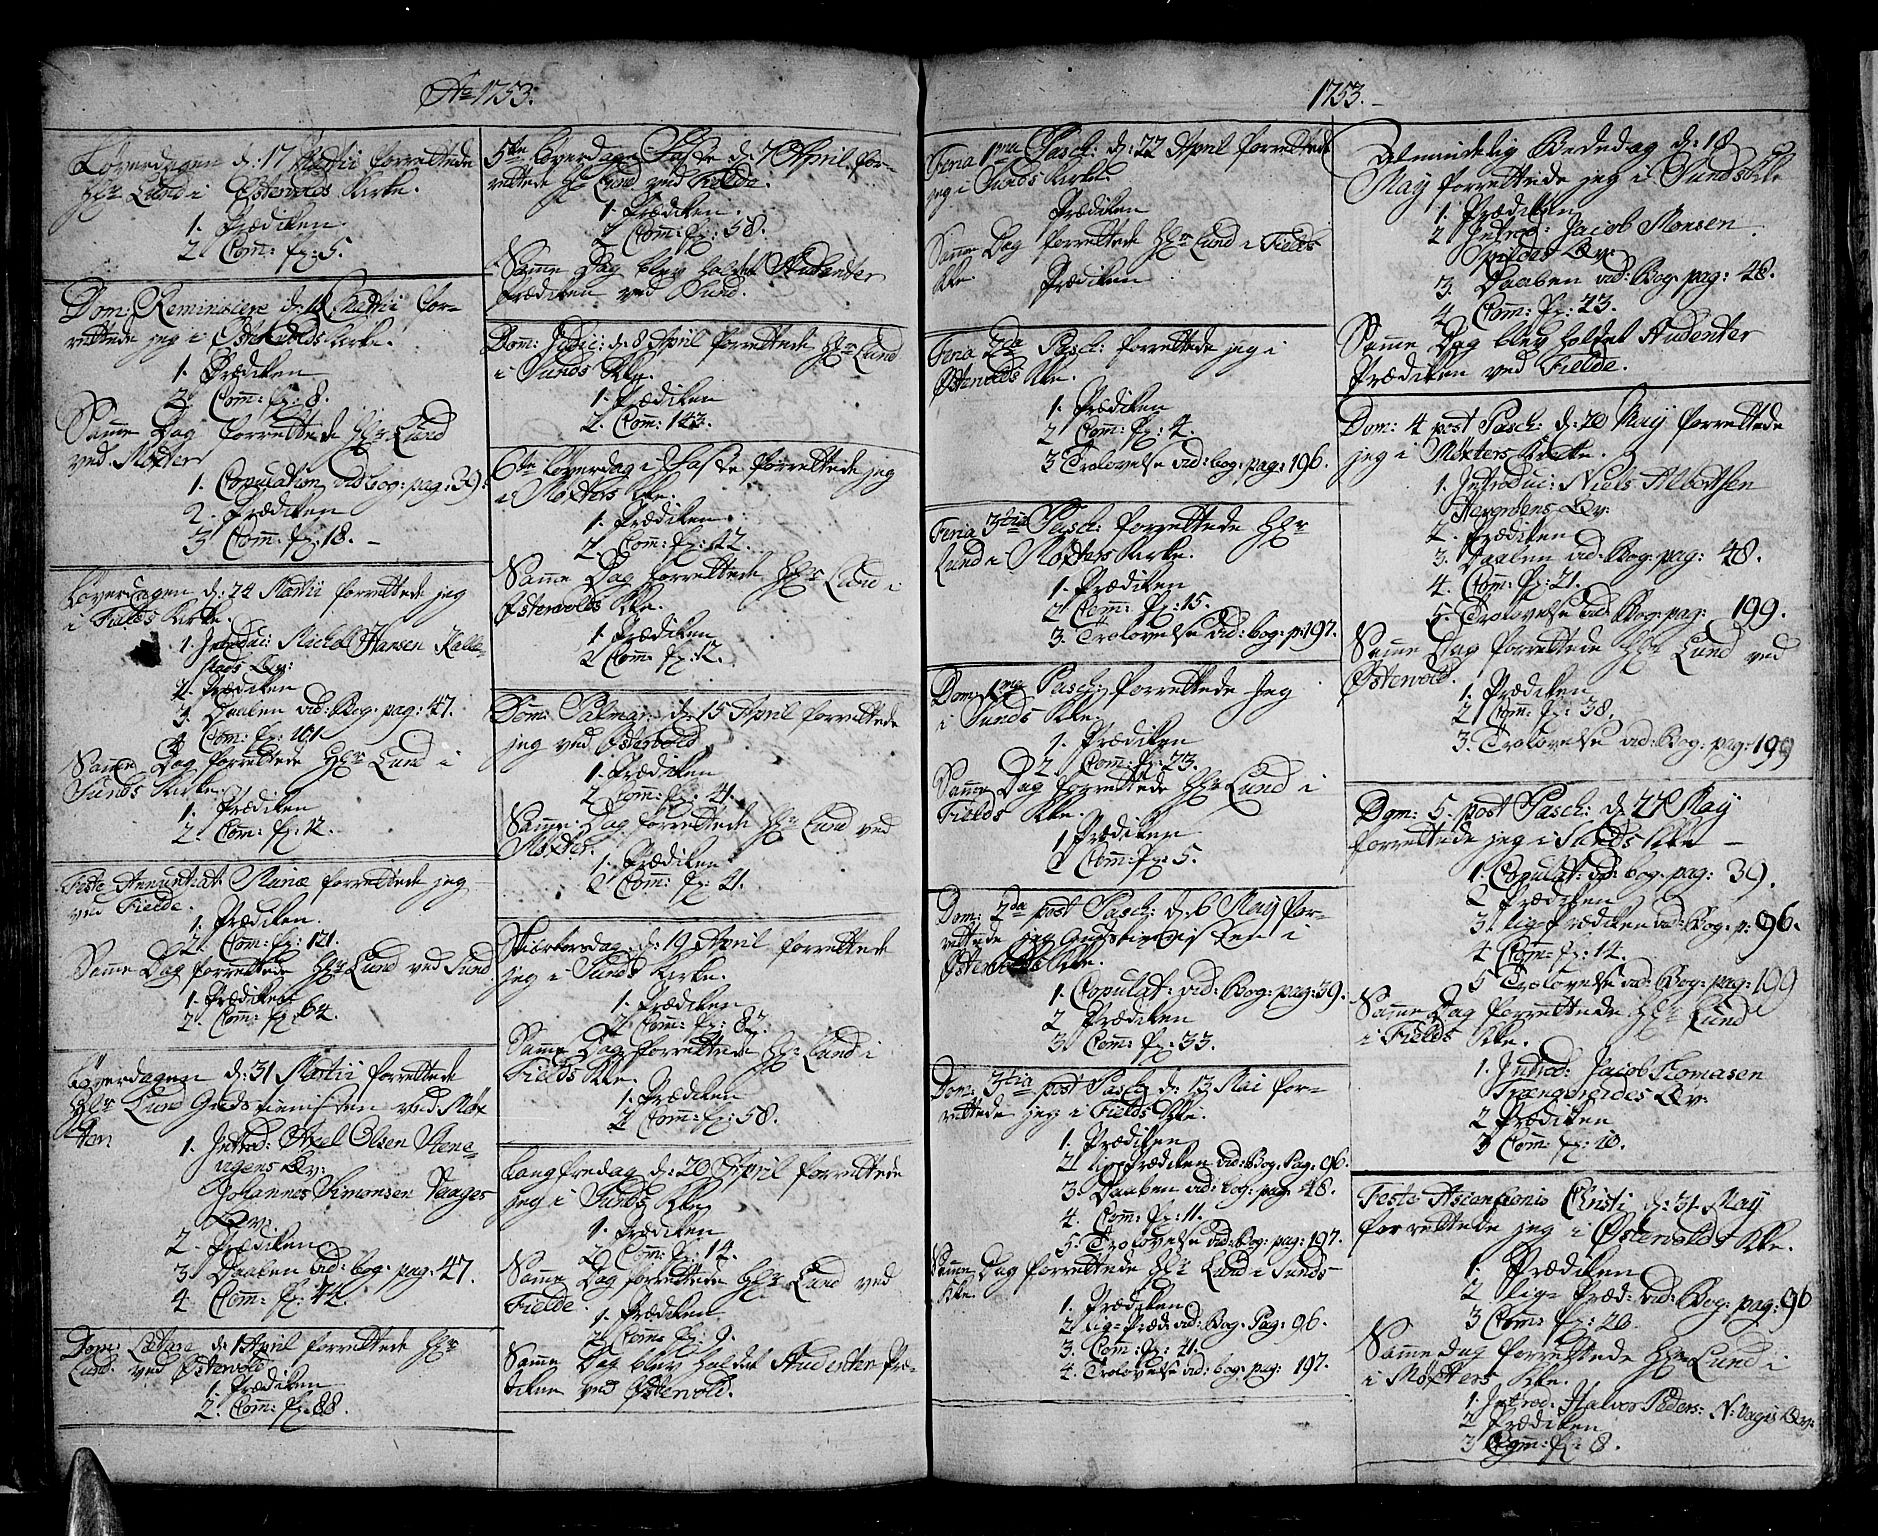 Ao 1753.
Løverdagen d: 17 Martii forrettede
Hr Lund i Østervolds Kirke.
1. Prædiken.
2. Com: fz: 5.
Dom: Reminiscere d: 18 Martii for-
rettede jeg i Østervolds Kirke.
1. Prædiken
2. Com: fz: 8.
Samme Dag forrettede Hr Lund
ved Møxter
1. Copulation vid bog: pag: 39.
2. Prædiken
3 Com: fz: 18. -
Løverdagen d: 24 Martii forrettede jeg
i Fields Kirke.
1. Introduc: Michel Hansen Kalle-
Qv:
2. Prædiken
3. Daaben vid: Bog: pag: 47.
4. Com: fz: 101
Samme Dag forrettede Hr Lund i
Sunds Kirke.
1. Prædiken
2. Com: fz: 12.
Festo Annuntiat: Mariæ forrettede jeg
ved Fielde.
1. Prædiken.
2. Com: fz: 121.
Samme Dag forrettede Hr Lund ved Sund.
1. Prædiken
2. Com: fz: 64.
Løverdagen d: 31 Martii forrettede
Hr Lund Gudstienisten ved Møx-
ter
1. Introd: Axel Olsen Stene-
vigens Qv:
Johannes Simonsen Vaages
Qv:
2. Prædiken
3. Daaben vid: bog: pag: 47.
4. Com: fz: 42.
Dom: Lætare d: 1 April forrettede Hr
Lund ved Østervold
1. Prædiken
2. Com: fz: 88.
5te Løverdag i Faste d: 7 April for-
rettede Hr Lund ved Fielde.
1. Prædiken.
2 Com: fz: 58.
Samme Dag blev holdet Studenter
Prædiken ved Sund.
Dom: Judic: d: 8 April forrettede Hr Lund
i Sunds Kke.
1. Prædiken
2. Com: 143.
6te Løverdag i Faste forrettede jeg
i Møxters Kke.
1. Prædiken
2. Com: fz: 122.
Samme Dag forrettede Hr Lund i
Østervolds Kke.
1. Prædiken
2 Com: fz: 12.
Dom: Palmar: d: 15 April forrettede
jeg ved Østervold
1. Prædiken
2 Com: fz: 41.
Samme Dag forrettede Hr Lund ved
Møxter.
1. Prædiken
2 Com: fz: 21.
Skiærtorsdag d: 19 April forrettede
jeg i Sunds Kirke.
1. Prædiken
2 Com: fz: 87.
Samme Dag forrettede Hr Lund i
Fields Kke.
1. Prædiken
2 Com: fz: 58.
Langfredag d: 20 April forrettede
jeg i Sunds Kke
1. Prædiken
2 Com: fz: 14.
Samme Dag forrettede Hr Lund ved
Fielde.
1. Prædiken
2 Com: fz: 9.
Samme Dag blev holdet Studenter Præ-
diken ved Østervold.
1753.
Feria 1ma Pasch: d: 22 April forrettede
jeg i Sunds Kirke
Prædiken
Samme Dag forrettede Hr Lund i Fields
Kke. Prædiken
Feria 2da Pasch: forrettede jeg i
Østervolds Kke.
1. Prædiken
2 Com: fz: 4.
3 Trolovelse vid: bog: pag: 196.
Feria 3tia Pasch: forrettede Hr
Lund i Møxters Kirke.
1. Prædiken
2 Com: fz: 15.
3. Trolovelse vid: bog: p: 197.
Dom: 1ma Pasch: forrettede Jeg
i Sunds Kke
1. Prædiken
2. Com: fz: 23.
Samme Dag forrettede Hr Lund i
Fields Kke.
1 Prædiken
2 Com: fz: 5.
Dom: 2da post Pasch: d: 6 May for-
rettede jeg Gudstienisten i
Østervolds Kke.
1. Copulat: vid: Bog: pag: 39.
2. Prædiken
3 Com: fz: 33.
Dom: 3tia post Pasch d: 13 Mai for-
rettede jeg i Fields Kke.
1. Prædiken
2 Liigprædiken vid: Bog: Pag: 96.
3. Daaben vid: bog: pag: 48.
4. Com: fz: 11.
5. Trolovelse vid: bog: pag: 197.
Samme Dag forrettede Hr Lund i Sunds
Kke.
1. Prædiken
2 Lig-Præd: vid: Bog: Pag: 96.
3. Com: fz: 21.
4. Trolovelse vid: bog: pag: 197.
Almindelig Bededag d: 18
May forrettede jeg i Sunds Kke
1. Prædiken
2 Introd: Jacob Monsen
Qv:
3. Daaben vid: Bog: pag: 48.
4. Com: fz: 23.
Samme Dag blev holdet Studenter
Prædiken ved Fielde.
Dom: 4 post Pasch: d: 20 May forrettede
jeg i Møxters Kirke.
1. Introduc: Niels Albertsen
Qv:
2. Prædiken
3. Daaben vid: Bog: pag: 48.
4. Com: fz: 21.
5. Trolovelse vid: Bog: pag: 199.
Samme Dag forrettede Hr Lund ved
Østervold.
1. Prædiken
2 Com: fz: 38.
3. Trolovelse vid: Bog: pag: 199
Dom: 5. post Pasch: d: 27 May
forrettede jeg i Sunds Kke -
1. Copulat: vid: bog: pag: 39.
2 Prædiken
3 Lig-Prædiken vid: Bog: p: 96.
4 Com: fz: 14.
5 Trolovelse vid: Bog: pag: 199
Samme Dag forrettede Hr Lund
i Fields Kke.
1. Introd: Jacob Tomasen
Trængereides Qv:
2 Prædiken
3 Com: fz: 10.
Festo Ascensionis Christi d: 31 May
forrettede jeg i Østervolds Kke.
1. Prædiken
2 Lig-Præd: vid: Bog: pag: 96
3 Com: fz: 20
Samme dag forrettede Hr Lund i
i Møxters Kke.
1. Introd: Halvor Peders: N: Vages Qv:
2 Prædiken
3 Com: fz: 8.